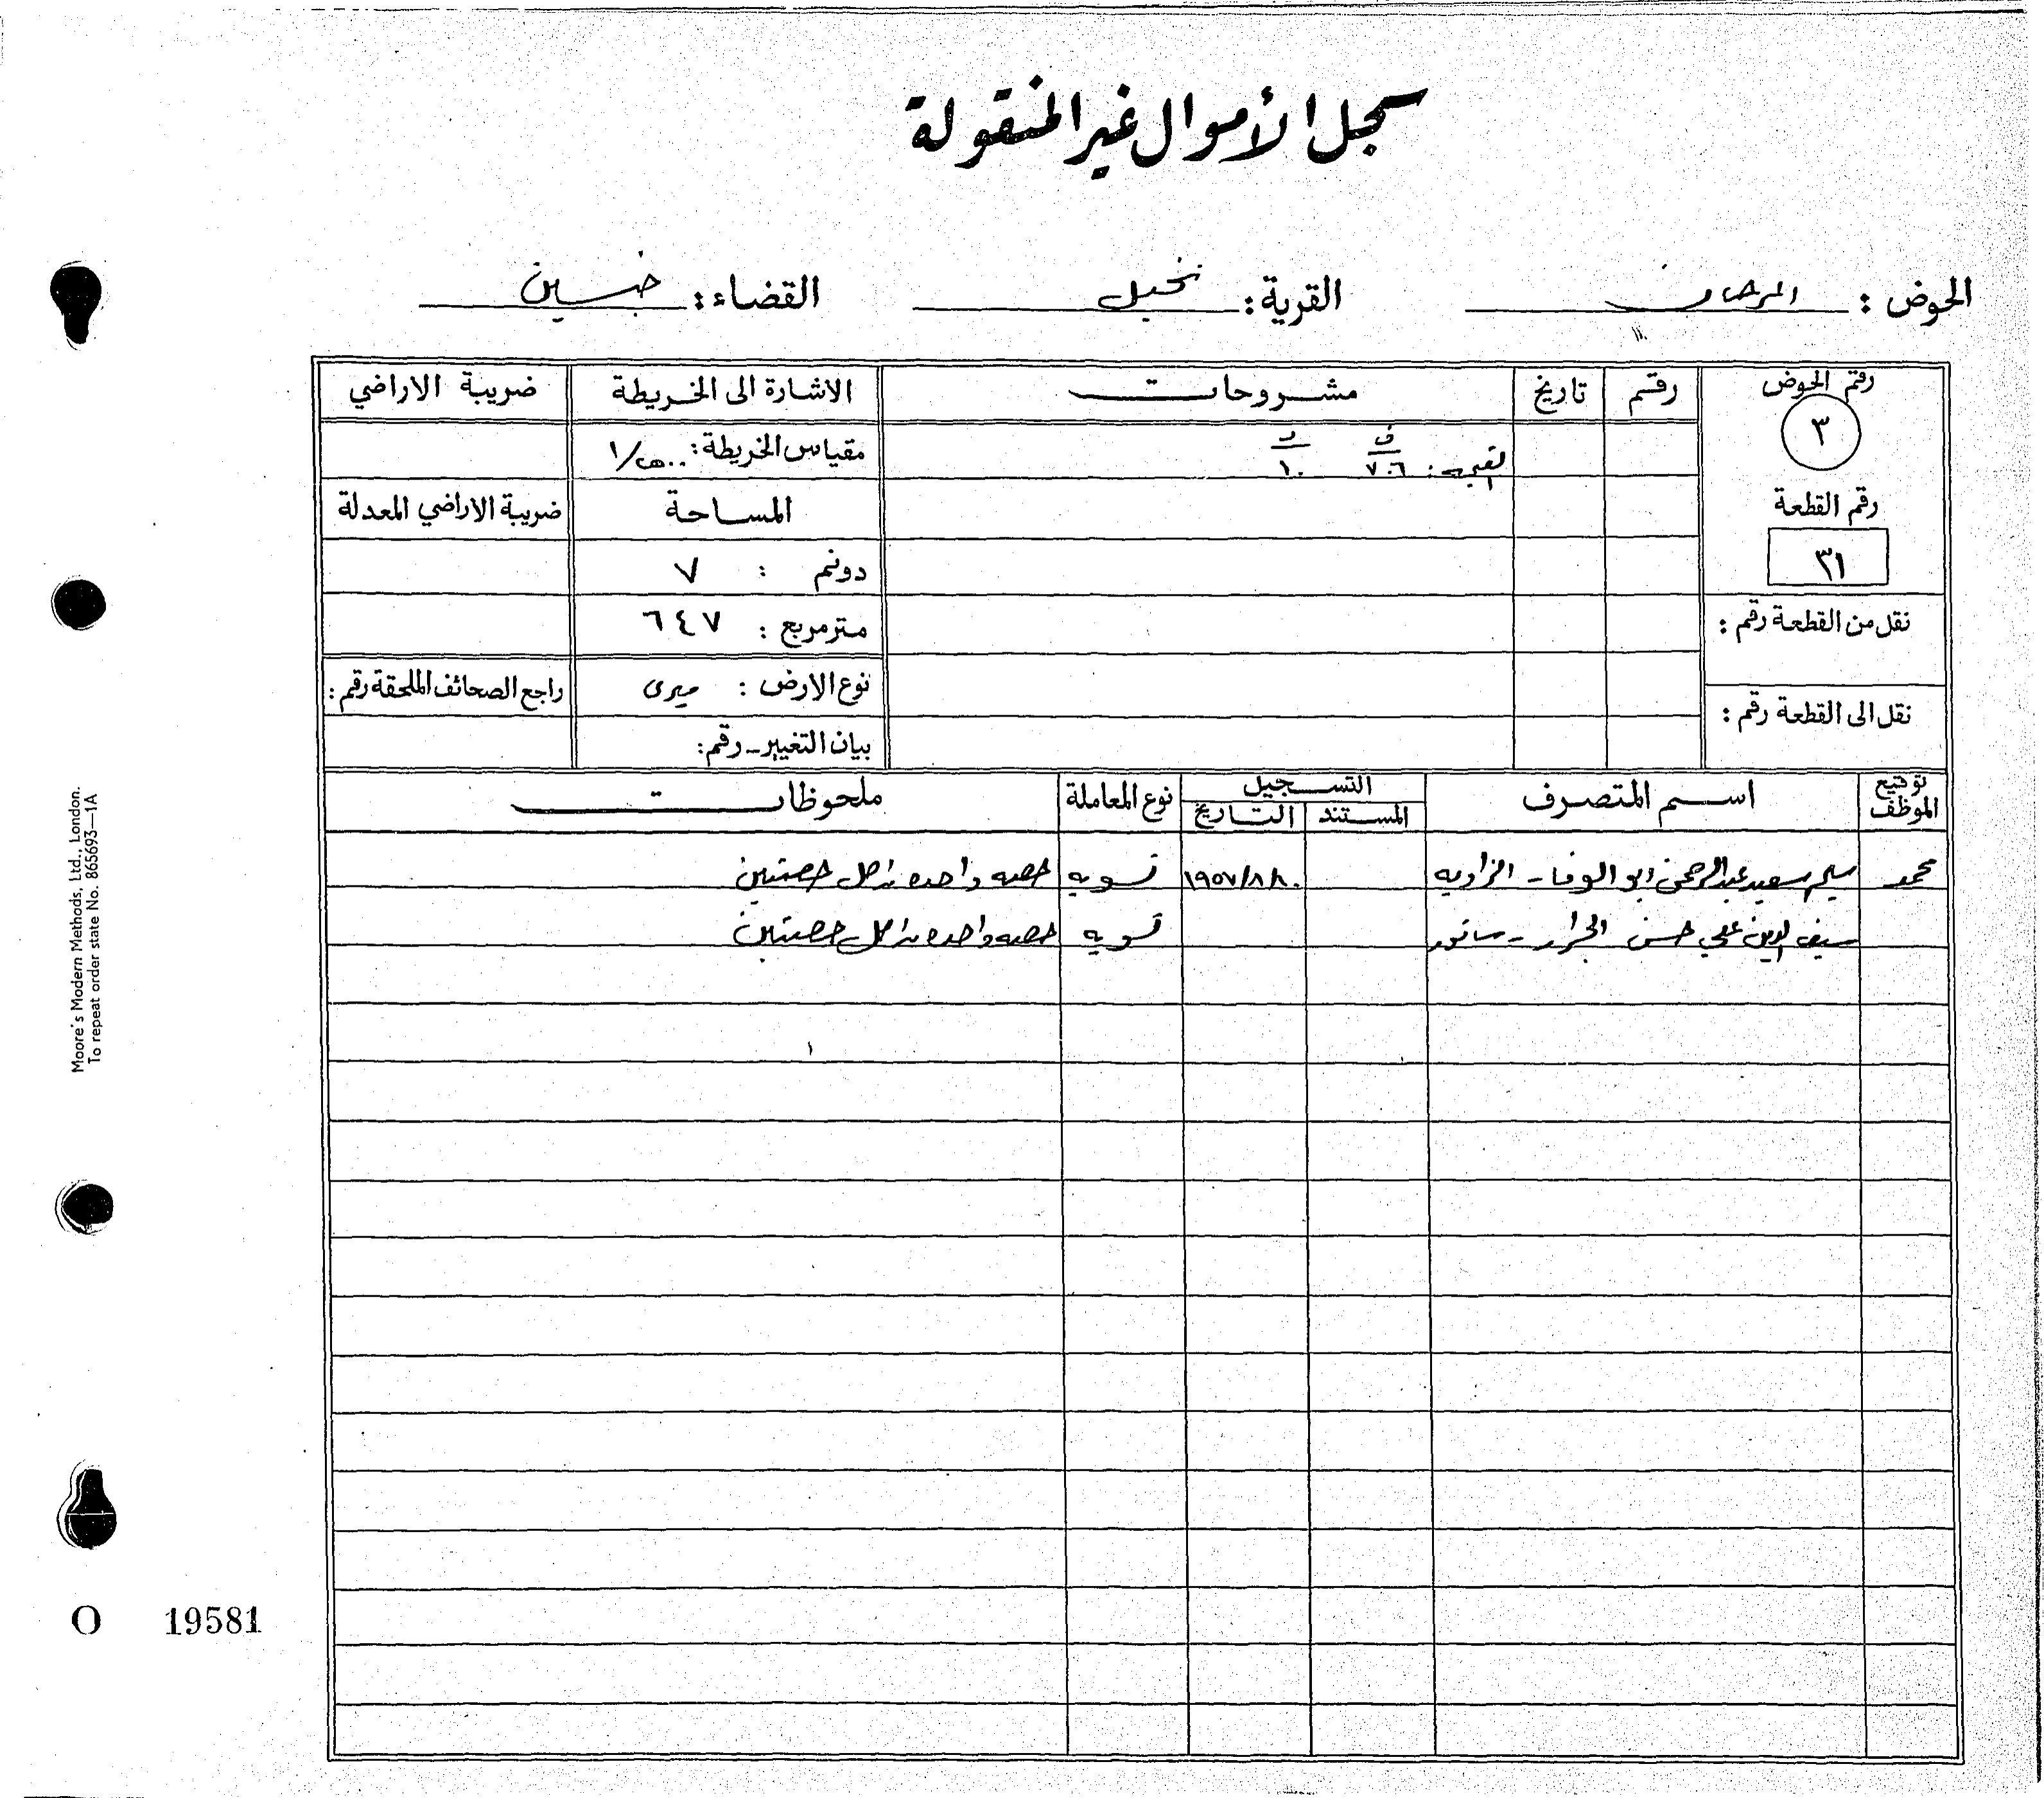 سجل الأموال غير المنقولة
الحوض : القرية : نخيل القضاء : جنين
رقم الحوض رقم تاريخ مشروحات الاشارة الى الخريطة ضريبة الاراضي
٣ القيمه : ف ٧٠٦ د ١٠ مقياس الخريطة : ١/٢٥٠٠
رقم القطعة المساحة ضريبة الاراضي المعدلة
٣١ دونم : ٧
نقل من القطعة رقم : مترمربع : ٦٤٧
نوع الارض : ميرى راجع الصحائف الملحقة رقم :
نقل الى القطعة رقم :
بيان التغيير - رقم :
توقيع الموظف اسم المتصرف التسجيل نوع المعاملة ملحوظات
المستند التاريخ
محمد سليم سعيد عبدالرحمن ابو الوفا - الزاويه ١٩٥٧/٨/٨٠ تسويه حصه واحده من اصل حصتين
سيف الدين علي حسن الجرار - صانور تسويه حصه واحده من اصل حصتين
Moore's Modern Methods, Ltd., London.
To repeat order state No. 865693—1A
O 19581